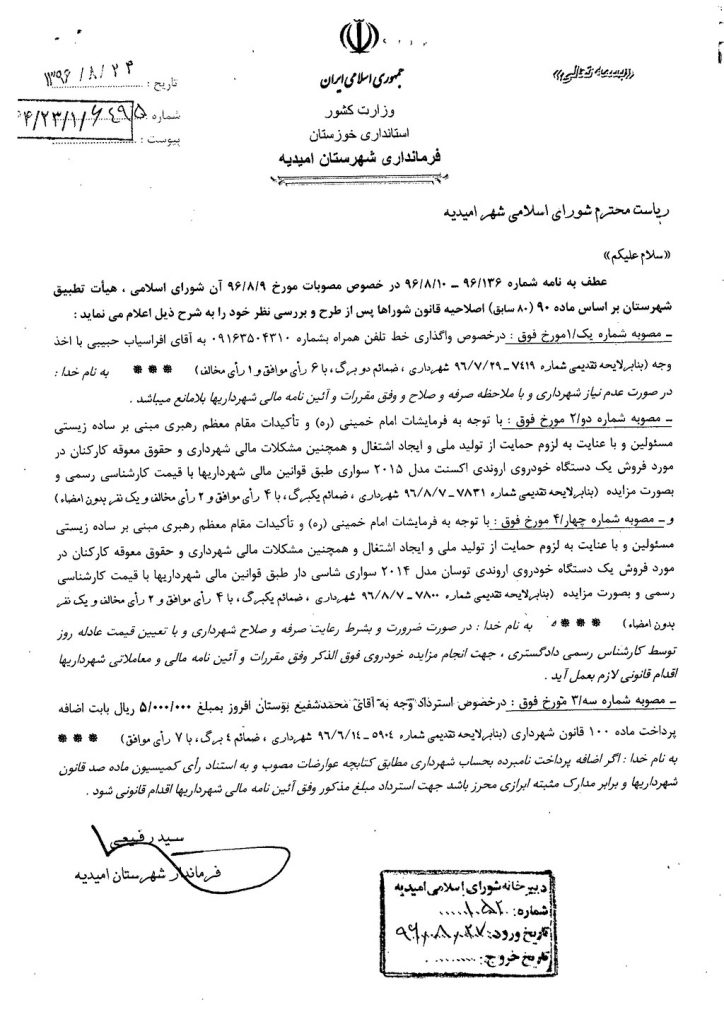 «بسمه تعالی»
جمهوری اسلامی ایران
وزارت کشور
استانداری خوزستان
فرمانداری شهرستان امیدیه
تاریخ : ۱۳۹۶/۸/۲۴
شماره : ۴/۲۳/۱/۶۴۹۵
پیوست :
ریاست محترم شورای اسلامی شهر امیدیه
«سلام علیکم»
عطف به نامه شماره ۹۶/۱۳۶ – ۹۶/۸/۱۰ در خصوص مصوبات مورخ ۹۶/۸/۹ آن شورای اسلامی ، هیأت تطبیق
شهرستان بر اساس ماده ۹۰ (۸۰ سابق) اصلاحیه قانون شوراها پس از طرح و بررسی نظر خود را به شرح ذیل اعلام می نماید :
– مصوبه شماره یک/۱مورخ فوق : درخصوص واگذاری خط تلفن همراه بشماره ۰۹۱۶۳۵۰۴۳۱۰ به آقای افراسیاب حبیبی با اخذ
وجه (بنابرلایحه تقدیمی شماره ۷۴۱۹–۹۶/۷/۲۹ شهرداری ، ضمائم دو برگ، با ۶ رأی موافق و ۱ رأی مخالف) *** به نام خدا :
در صورت عدم نیاز شهرداری و با ملاحظه صرفه و صلاح و وفق مقررات و آئین نامه مالی شهرداریها بلامانع میباشد .
– مصوبه شماره دو/۲ مورخ فوق : با توجه به فرمایشات امام خمینی (ره) و تأکیدات مقام معظم رهبری مبنی بر ساده زیستی
مسئولین و با عنایت به لزوم حمایت از تولید ملی و ایجاد اشتغال و همچنین مشکلات مالی شهرداری و حقوق معوقه کارکنان در
مورد فروش یک دستگاه خودروی اروندی اکسنت مدل ۲۰۱۵ سواری طبق قوانین مالی شهرداریها با قیمت کارشناسی رسمی و
بصورت مزایده (بنابرلایحه تقدیمی شماره ۷۸۳۱–۹۶/۸/۷ شهرداری ، ضمائم یکبرگ، با ۴ رأی موافق و ۲ رأی مخالف و یک نفر بدون امضاء)
و – مصوبه شماره چهار/۴ مورخ فوق : با توجه به فرمایشات امام خمینی (ره) و تأکیدات مقام معظم رهبری مبنی بر ساده زیستی
مسئولین و با عنایت به لزوم حمایت از تولید ملی و ایجاد اشتغال و همچنین مشکلات مالی شهرداری و حقوق معوقه کارکنان در
مورد فروش یک دستگاه خودروی اروندی توسان مدل ۲۰۱۴ سواری شاسی دار طبق قوانین مالی شهرداریها با قیمت کارشناسی
رسمی و بصورت مزایده (بنابرلایحه تقدیمی شماره ۷۸۰۰–۹۶/۸/۷ شهرداری ، ضمائم یکبرگ، با ۴ رأی موافق و ۲ رأی مخالف و یک نفر
بدون امضاء) *** به نام خدا : در صورت ضرورت و بشرط رعایت صرفه و صلاح شهرداری و با تعیین قیمت عادله روز
توسط کارشناس رسمی دادگستری ، جهت انجام مزایده خودروی فوق الذکر وفق مقررات و آئین نامه مالی و معاملاتی شهرداریها
اقدام قانونی لازم بعمل آید .
– مصوبه شماره سه/۳ مورخ فوق : درخصوص استرداد وجه به آقای محمدشفیع بوستان افروز بمبلغ ۵/۰۰۰/۰۰۰ ریال بابت اضافه
پرداخت ماده ۱۰۰ قانون شهرداری (بنابرلایحه تقدیمی شماره ۵۹۰۴–۹۶/۶/۱۴ شهرداری ، ضمائم ۴ برگ، با ۷ رأی موافق) ***
به نام خدا : اگر اضافه پرداخت نامبرده بحساب شهرداری مطابق کتابچه عوارضات مصوب و به استناد رأی کمیسیون ماده صد قانون
شهرداریها و برابر مدارک مثبته ابرازی محرز باشد جهت استرداد مبلغ مذکور وفق آئین نامه مالی شهرداریها اقدام قانونی شود .
سید رفیعی
فرماندار شهرستان امیدیه
دبیرخانه شورای اسلامی امیدیه
شماره: ۱۰۵۲
تاریخ ورود: ۹۶،۰۸،۲۷
تاریخ خروج: